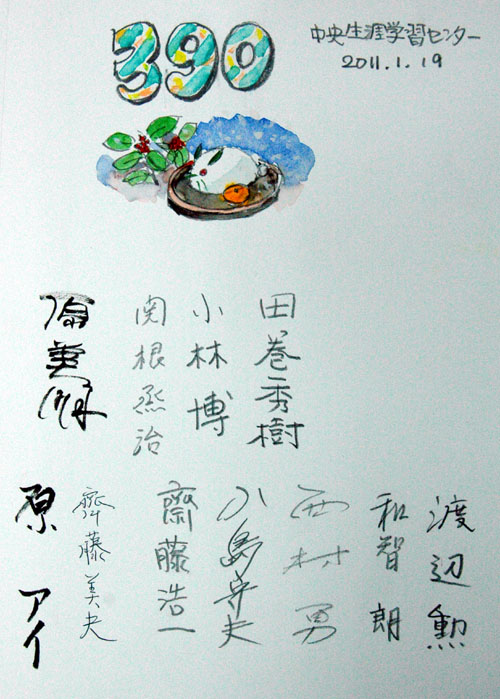 390
中央生涯学習センター
2011.1.19
田巻秀樹
小林博
関根烝治
渡辺勲
和智朗
西村勇
八島守夫
齋藤浩一
齋藤美夫
原アイ